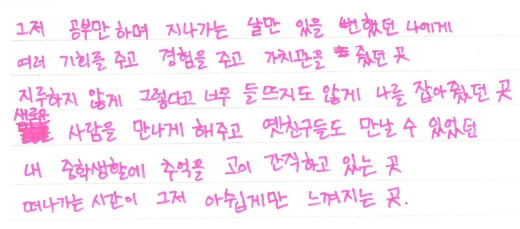 그저 공부만 하며 지나가는 날만 있을 뻔했던 나에게
여러 기회를 주고 경험을 주고 가치관을 줬던 곳
지루하지 않게 그렇다고 너무 들뜨지도 않게 나를 잡아줬던 곳
새로운 사람을 만나게 해주고 옛친구들도 만날 수 있었던
내 중학생활에 추억을 고이 간직하고 있는 곳
떠나가는 시간이 그저 아쉽게만 느껴지는 곳.